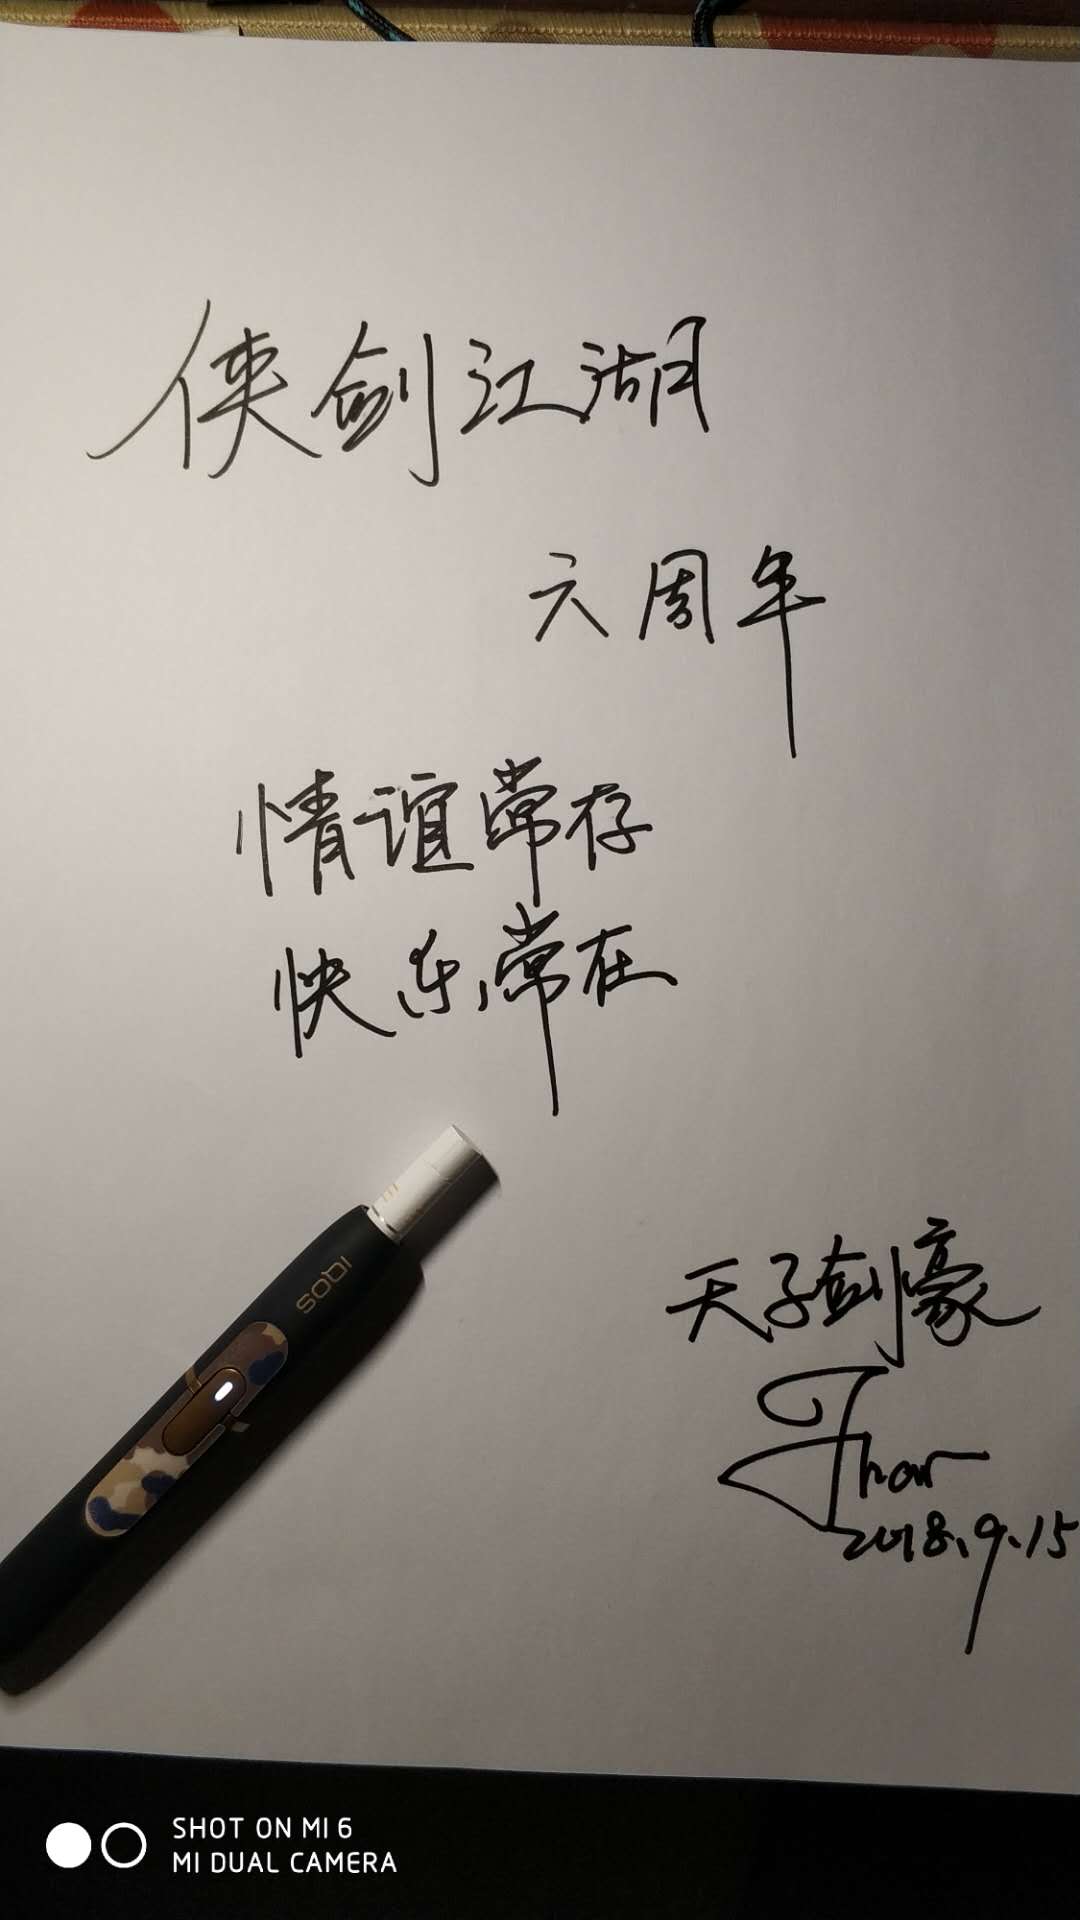 侠剑江湖
六周年
情谊常存
快乐常在
IQOS
天子剑豪
2018.9.15
SHOT ON MI 6
MI DUAL CAMERA